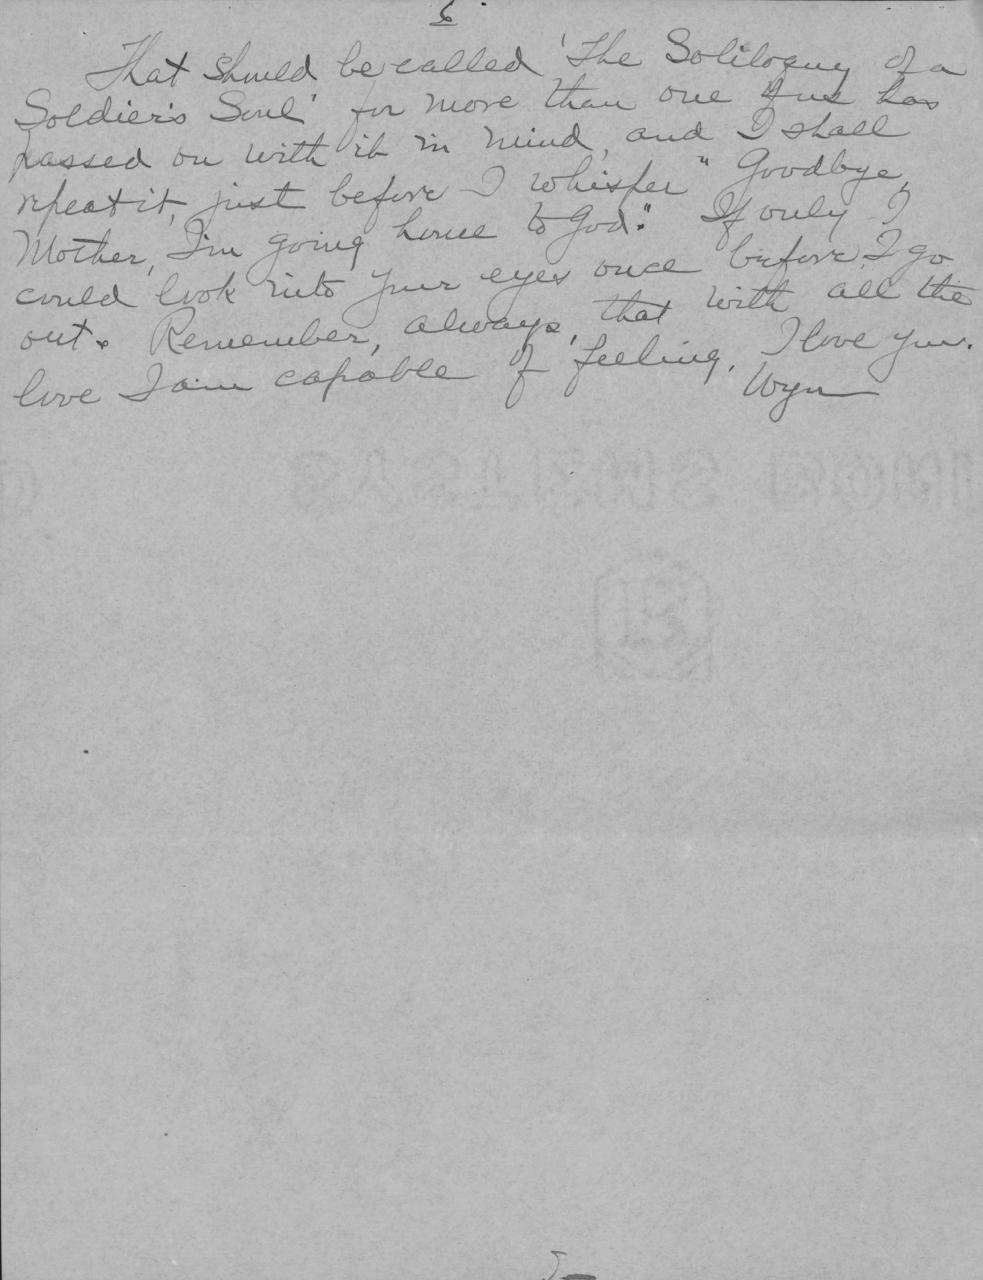 6.
That should be called 'The Soliloquy of a
Soldier's Soul' for more than one of us has
passed on with it in mind, and I shall
repeat it, just before I whisper "Goodbye,
Mother, I'm going home to God." If only I
could look into your eyes once before I go
out. Remember, always, that with all the
love I am capable of feeling, I love you.
Wyn